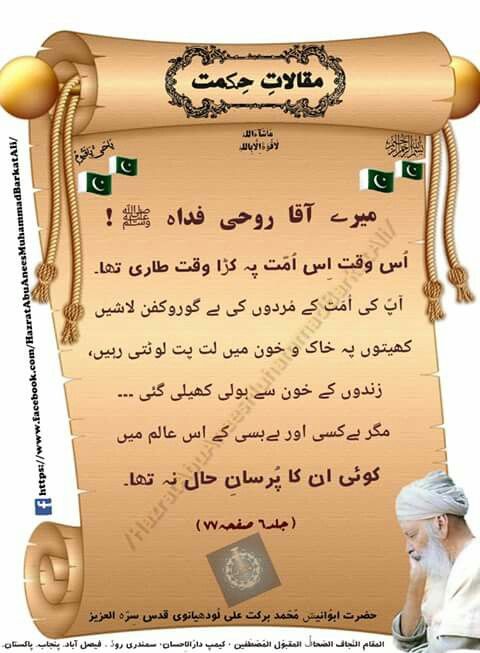 مقالاتِ حِکمت
مَاشَآءَاللہ
لَا قُوَّۃَ اِلَّا بِاللہ
بسم اللہ الرحمن الرحیم
یاحیُّ یاقیُّوم
میرے آقا روحی فداہ ﷺ !
اُس وقت اِس اُمّت پہ کڑا وقت طاری تھا۔
آپؐ کی اُمّت کے مَردوں کی بے گوروکفن لاشیں
کھیتوں پہ خاک و خون میں لت پت لوٹتی رہیں،
زندوں کے خون سے ہولی کھیلی گئی ---
مگر بےکسی اور بےبسی کے اس عالم میں
کوئی ان کا پُرسانِ حال نہ تھا۔
(جلد ٦ صفحہ ٧٧)
حضرت ابوانیس مُحمد برکت علی لُودھیانوی قدس سرّہ العزیز
المقام النّجاف الصّحاف المقبول المُصطفین · کیمپ دارُالاحسان · سمندری روڈ · فیصل آباد۔ پنجاب۔ پاکستان۔
https://www.facebook.com/HazratAbuAneesMuhammadBarkatAli/
/HazratAbuAneesMuhammadBarkatAli/